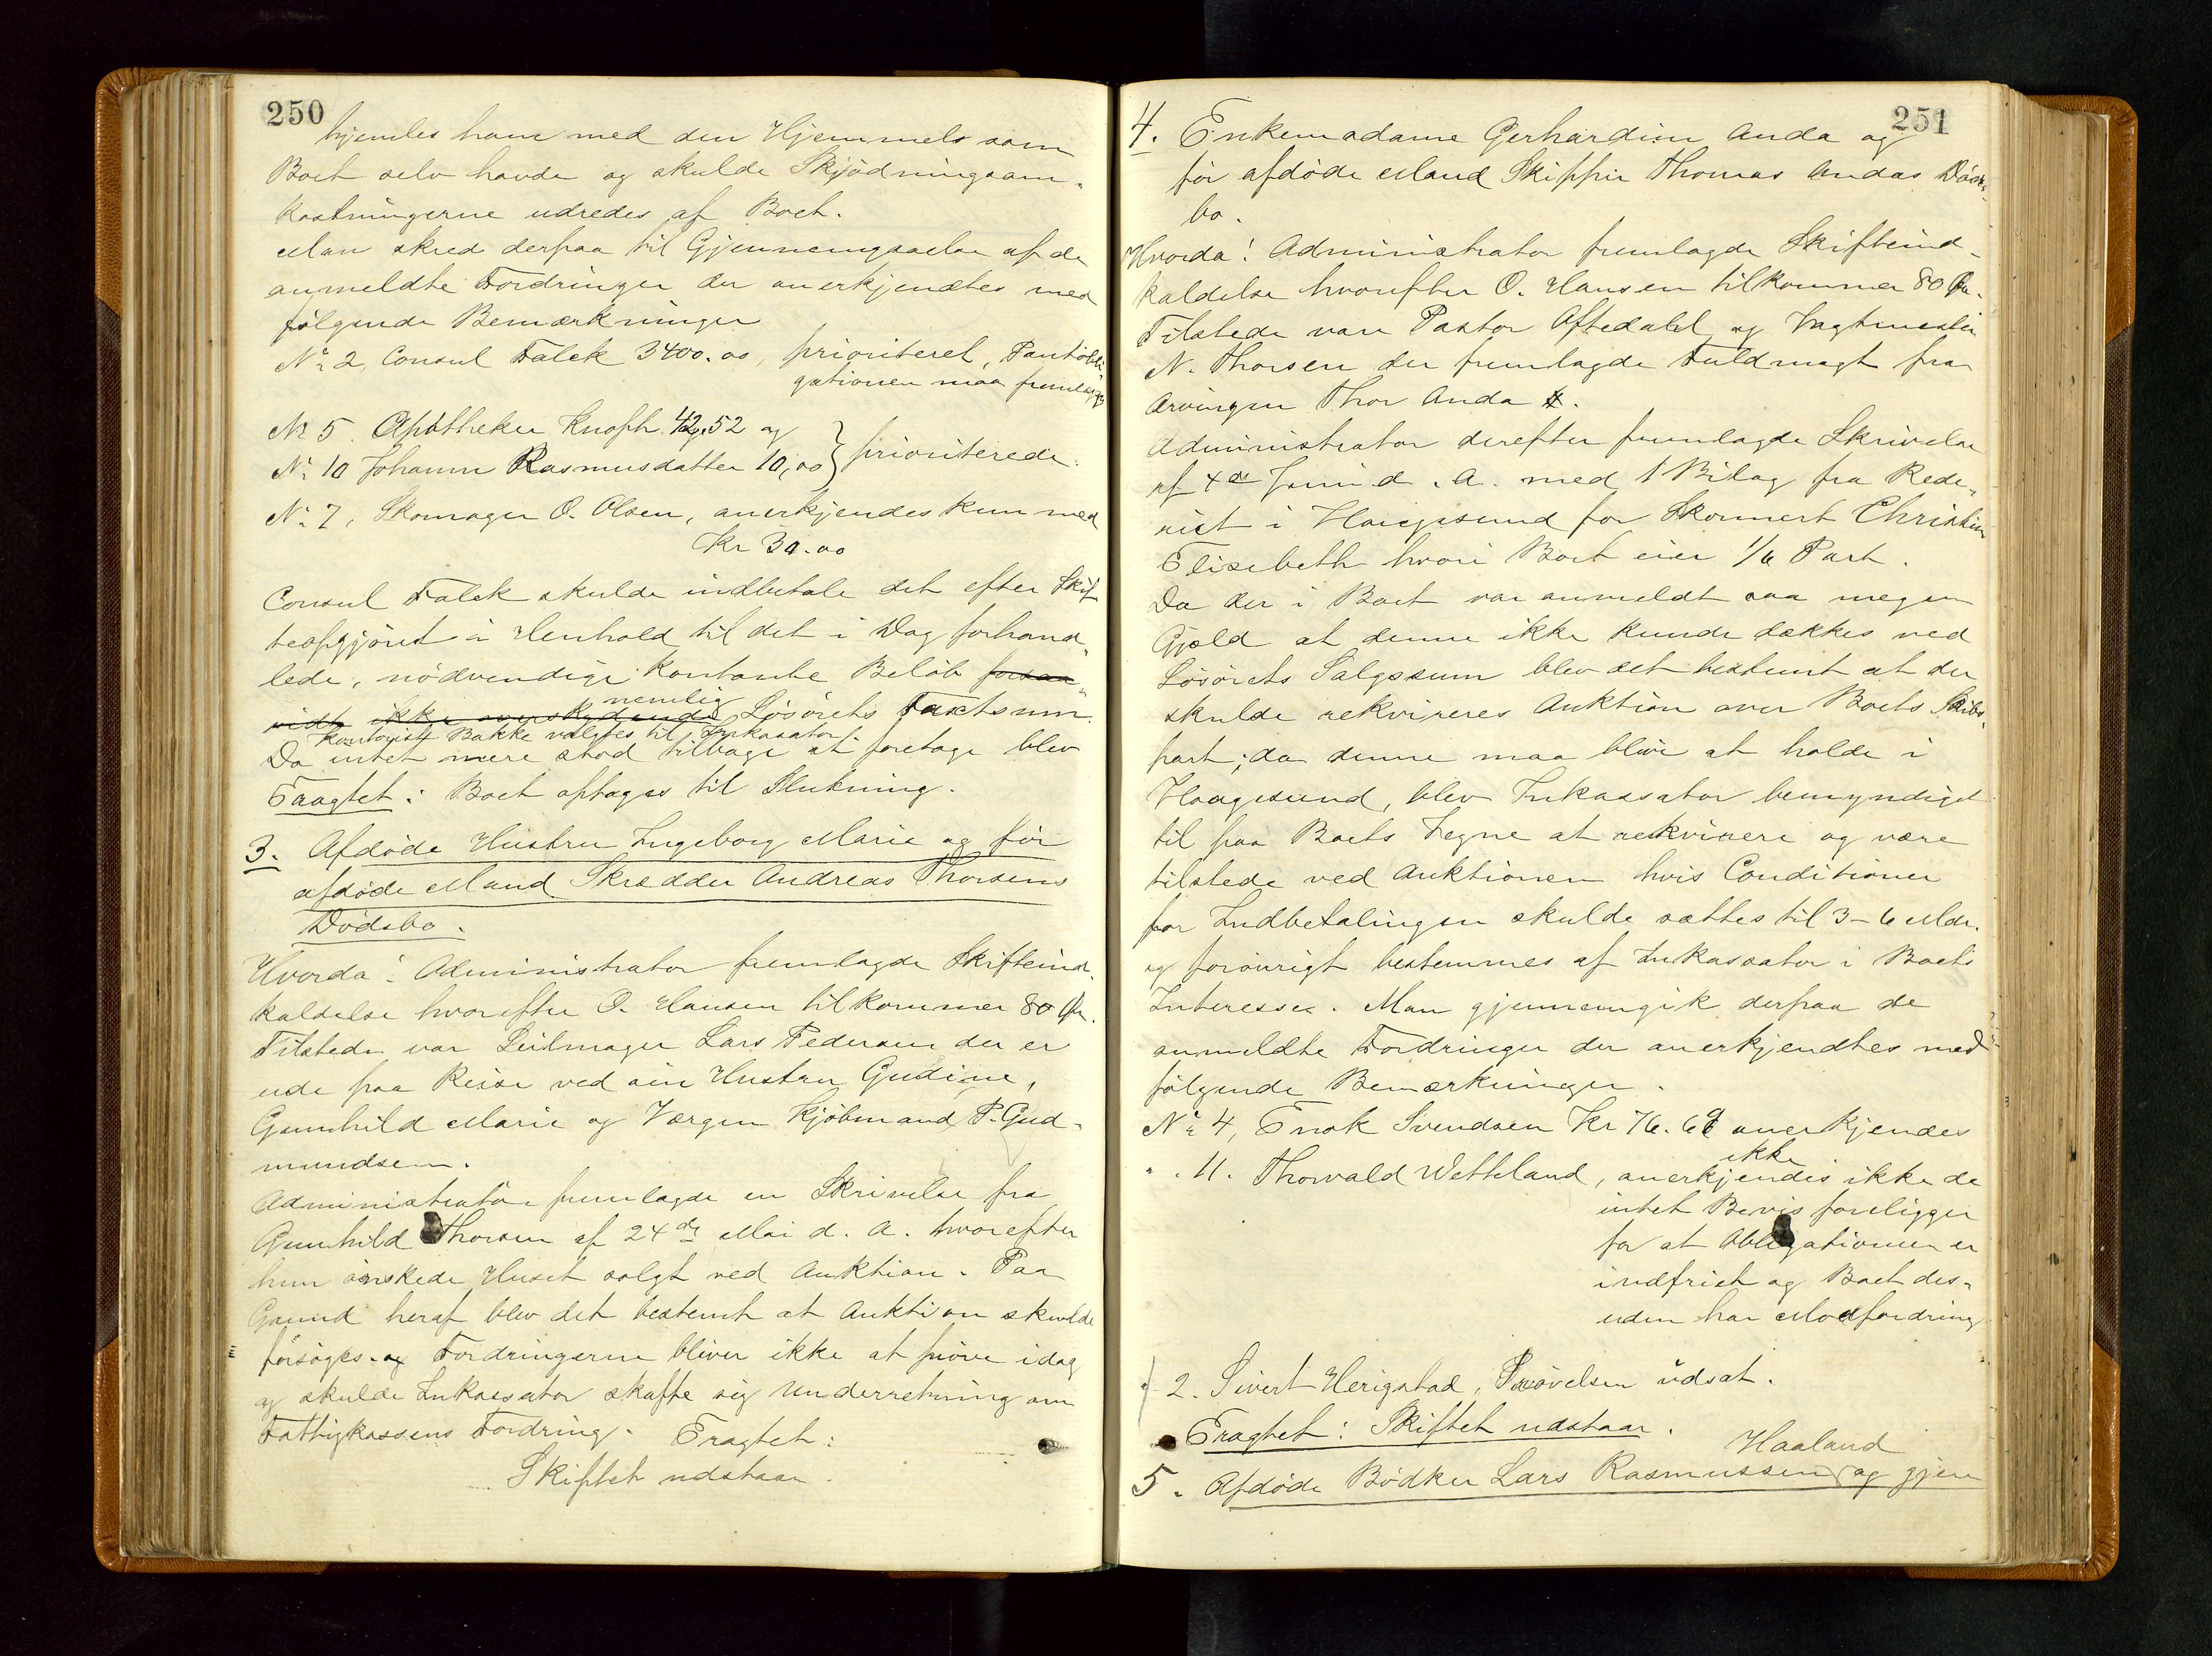 250
hjemles ham med den Hjemmels som
Boet selv havde og skulde Skjødningsom-
kostningerne udredes af Boet.
Man skred derpaa til Gjennemgaaelse af de
anmeldte Fordringer der anerkjendtes med
følgende Bemærkninger
No 2, Consul Falck 3400.00, prioriteret, Pantobli-
gationen maa fremlægges
No 5. Apotheker Knoph. 42,52 og
No 10 Johanne Rasmusdatter 10,00 } prioriterede.
No 7, Skomager O. Olsen, anerkjendes kun med
Kr 30.00
Consul Falck skulde indbetale det efter Skif-
teopgjøret i Henhold til det i Dag forhand-
lede, nødvendige kontante Beløb forsaa-
vidt ikke overskydende nemlig Løsørets Taxtsum.
Kontorist Bakke valgtes til Inkassator.
Da intet mere stod tilbage at foretage blev
Eragtet: Boet optages til Slutning.
3. Afdøde Hustru Ingeborg Marie og før
afdøde Mand Skrædder Andreas Thorsens
Dødsbo.
Hvorda! Administrator fremlagde Skifteind-
kaldelse hvorefter O. Hansen tilkommer 80 Øre.
Tilstede var Seilmager Lars Pedersen der er
ude paa Reise ved sin Hustru Gudine,
Gunhild Marie og Værgen Kjøbmand P. Gud-
mundsen.
Administrator fremlagde en Skrivelse fra
Gunhild Thorsen af 24de Mai d. A. hvorefter
hun ønskede Huset solgt ved Auktion. Paa
Grund heraf blev det bestemt at Auktion skulde
forsøges og Fordringerne bliver ikke at prøve idag
og skulde Inkassator skaffe sig Underretning om
Fattigkassens Fordring. Eragtet:
Skiftet udstaar.
251
4. Enkemadame Gerhardine Anda og
før afdøde Mand Skipper Thomas Andas Døds-
bo.
Hvorda! Administrator fremlagde Skifteind-
kaldelse hvorefter O. Hansen tilkommer 80 Øre.
Tilstede vare Pastor Oftedahl og Vagtmester
N. Thorsen der fremlagde Fuldmagt fra
Arvingen Thor Anda.
Administrator derefter fremlagde Skrivelse
af 4de Juni d. A. med 1 Bilag fra Rede-
riet i Haugesund for Skonnert Christine
Elisebeth hvori Boet eier 1/6 Part.
Da der i Boet var anmeldt saa megen
Gjæld at denne ikke kunde dækkes ved
Løsørets Salgssum blev det bestemt at der
skulde rekvireres Auktion over Boets Skibs-
part; da denne maa blive at holde i
Haugesund, blev Inkassator bemyndiget
til paa Boets Vegne at rekvirere og være
tilstede ved Auktionen hvis Conditioner
for Indbetalingen skulde sættes til 3-6 Mdr.
og forøvrigt bestemmes af Inkassator i Boets
Interesser. Man gjennemgik derpaa de
anmeldte Fordringer der anerkjendtes med
følgende Bemærkninger.
No 4, Enok Svendsen Kr 76.69 anerkjendes
ikke
" . 11. Thorvald Wetteland, anerkjendes ikke da
intet Bevis foreligger
for at Obligationen er
indfriet og Boet des-
uden har Modfordring
" 2. Sivert Herigstad, Prøvelsen udsat.
Eragtet: Skiftet udstaar.
Haaland
5. Afdøde Bødker Lars Rasmussen og gjen